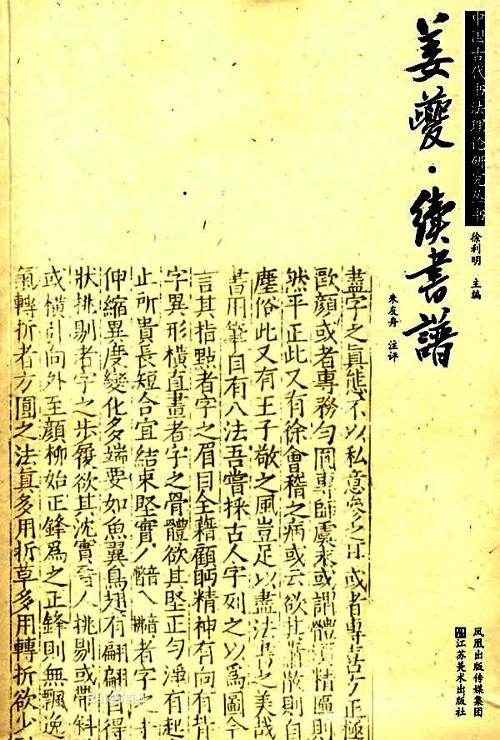 中国古代书法理论研究丛书
徐利明 主编
姜夔·续書譜
朱友舟 注评
盡字之真態不以私意參之耳或者專喜方正極
歐顏或者專務勻圓專師虞永或謂體須稍匾則自
然平正此又有徐會稽之病或云欲其蕭散則自
塵俗此又有王子敬之風豈足以盡法書之美哉
書用筆自有八法吾嘗採古人字列之以為圖今
言其指點者字之眉目全藉顧眄精神有向有背
字異形橫直畫者字之骨體欲其堅正勻淨有起
止所貴長短合宜結束堅實丿 乀 者字之手
伸縮異度變化多端要如魚翼鳥翅有翩翩自得
狀挑剔者字之步履欲其沈實晉人挑剔或帶斜
或橫引向外至顏柳始正鋒為之正鋒則無飄逸
氣轉折者方圓之法真多用折草多用轉折欲少
凤凰出版传媒集团
江苏美术出版社